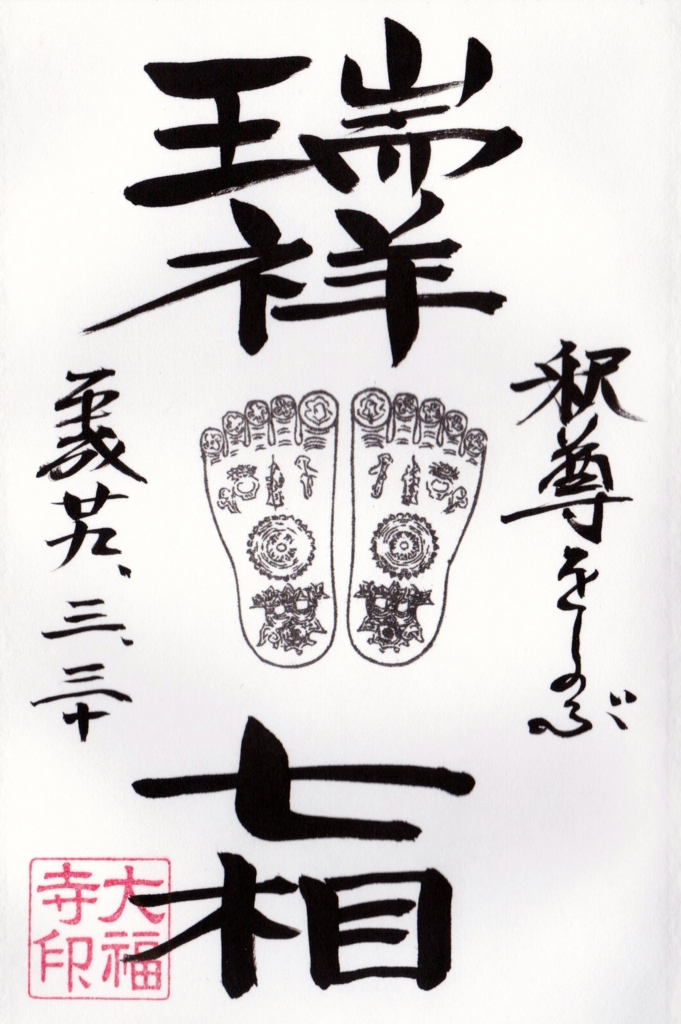 瑞祥
七相
釈尊をしのぶ
平成廿九、三、三十
大福
寺印